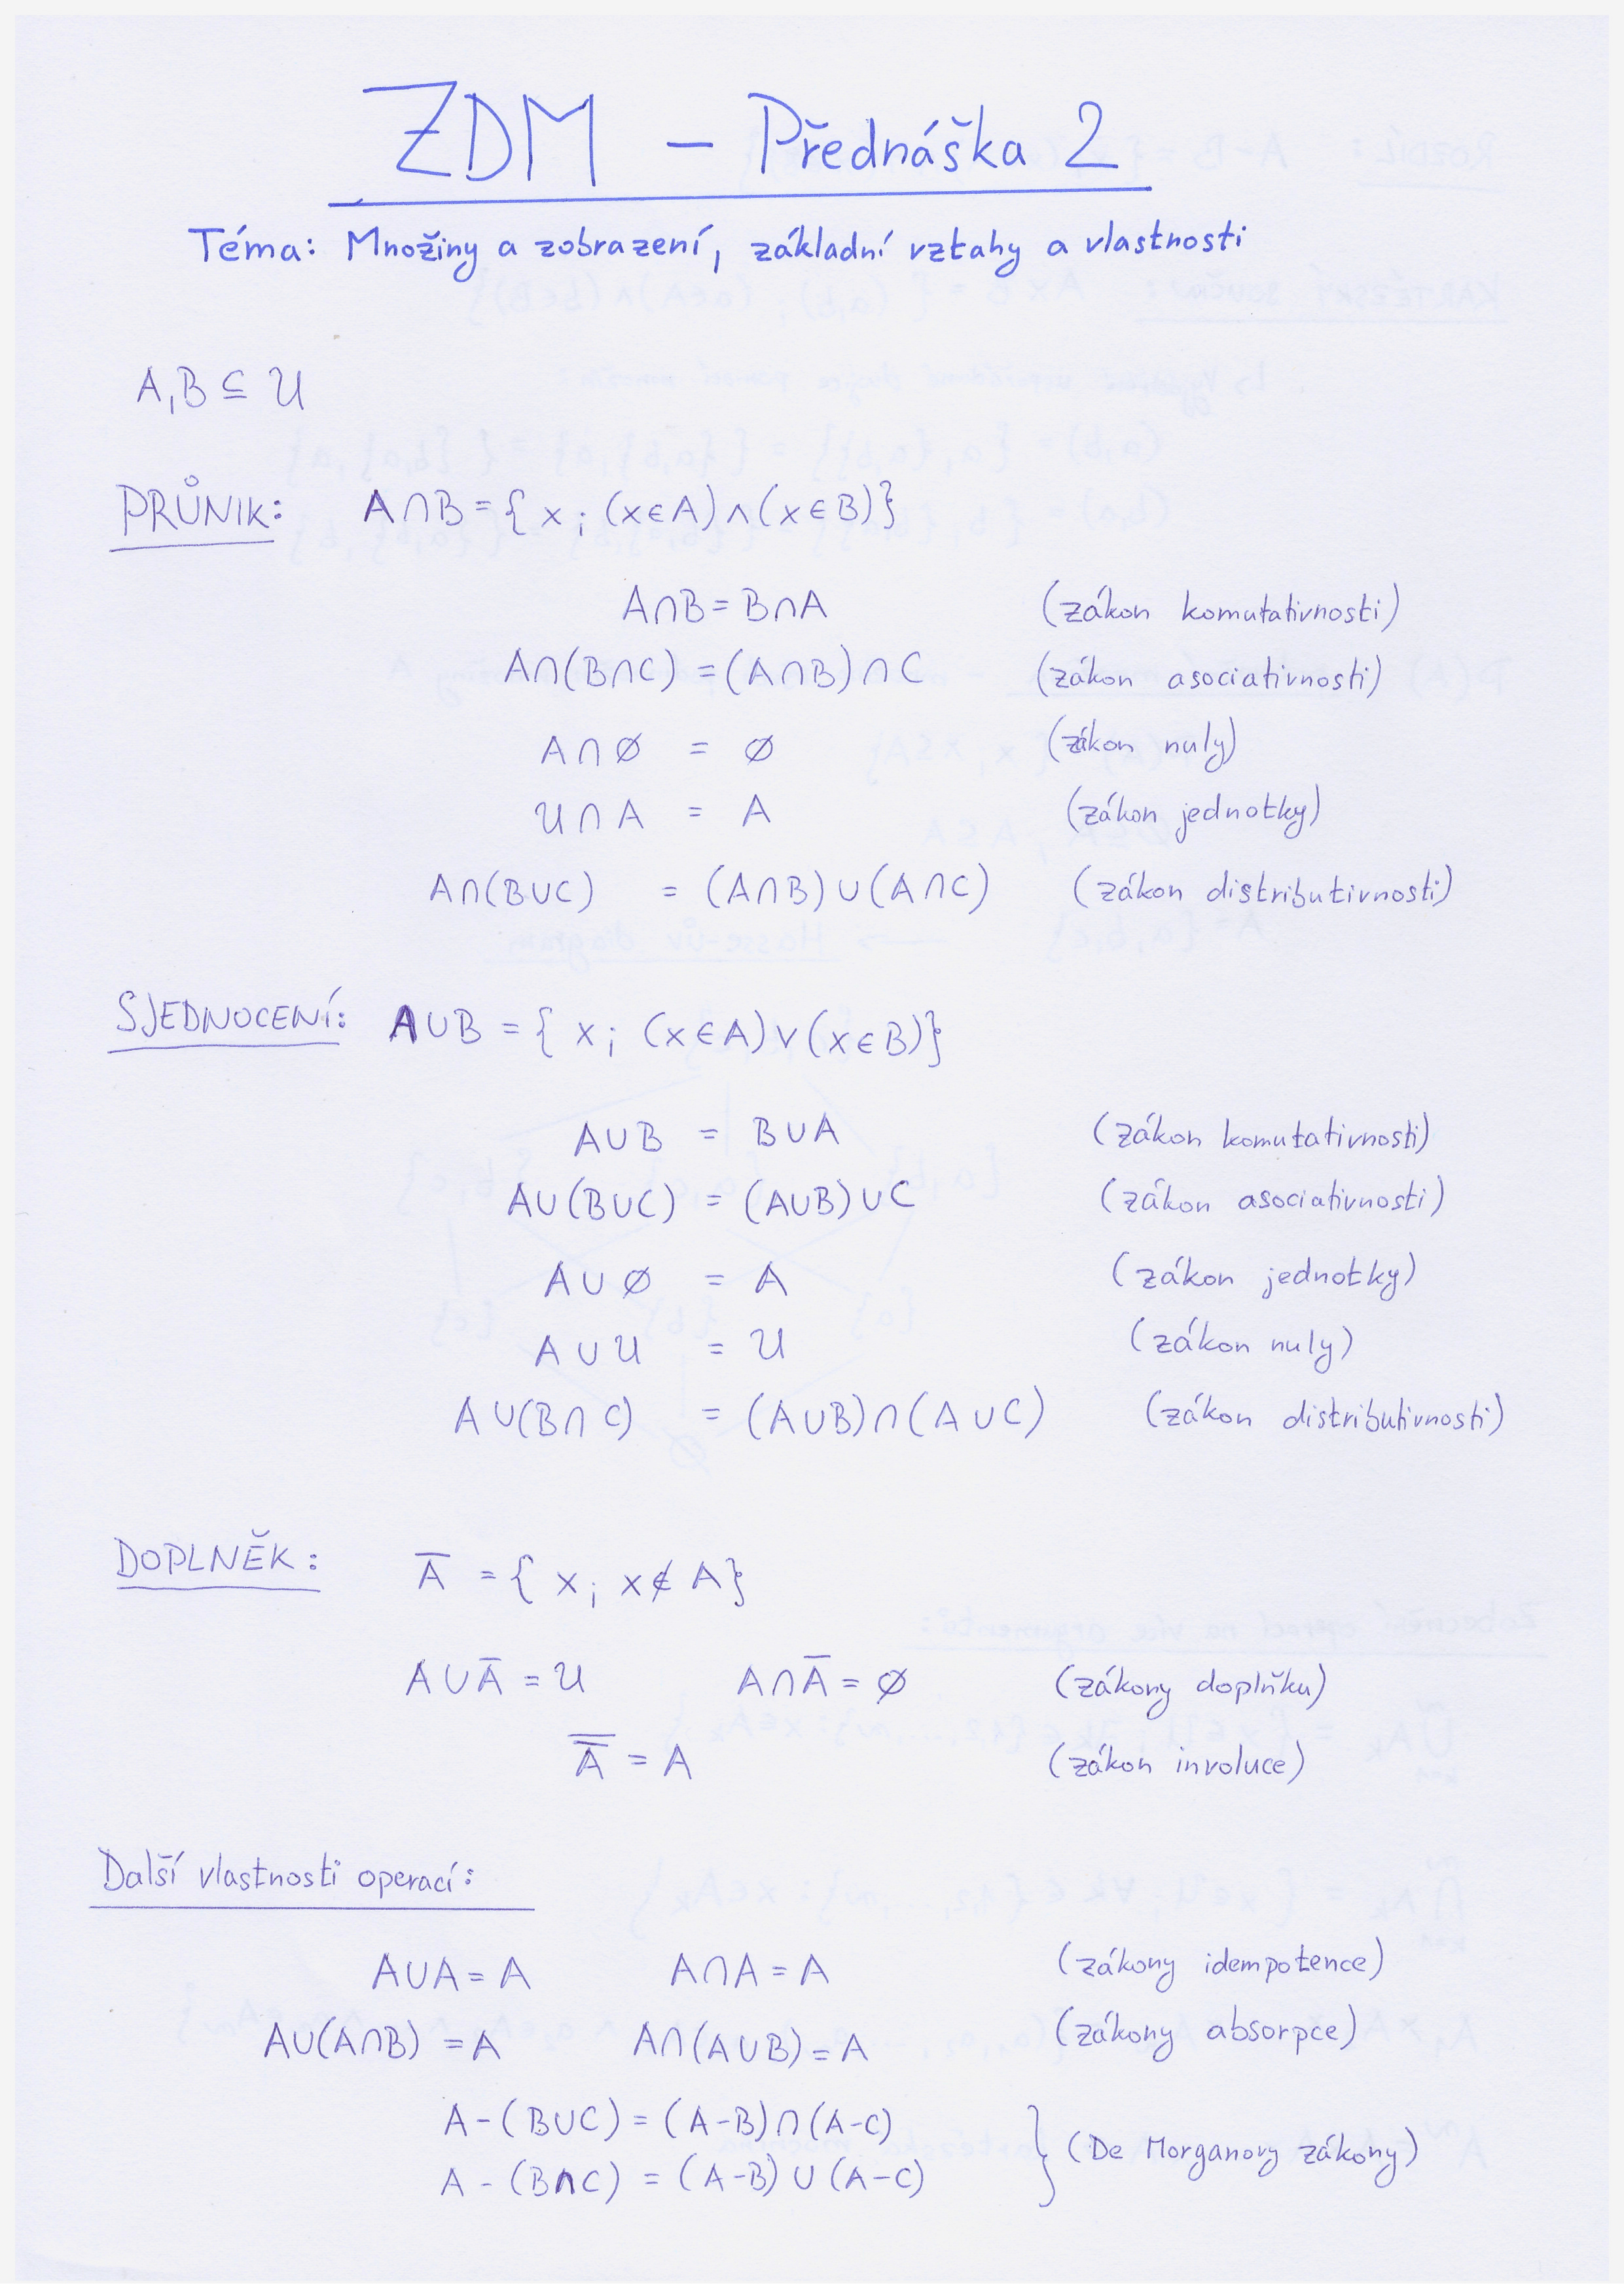 ZDM – Přednáška 2
Téma: Množiny a zobrazení, základní vztahy a vlastnosti
A,B ⊆ U
PRŮNIK: A∩B = { x ; (x∈A)∧(x∈B)}
A∩B = B∩A (zákon komutativnosti)
A∩(B∩C) = (A∩B)∩C (zákon asociativnosti)
A∩∅ = ∅ (zákon nuly)
U∩A = A (zákon jednotky)
A∩(B∪C) = (A∩B)∪(A∩C) (zákon distributivnosti)
SJEDNOCENÍ: A∪B = { x; (x∈A)∨(x∈B)}
A∪B = B∪A (zákon komutativnosti)
A∪(B∪C) = (A∪B)∪C (zákon asociativnosti)
A∪∅ = A (zákon jednotky)
A∪U = U (zákon nuly)
A∪(B∩C) = (A∪B)∩(A∪C) (zákon distributivnosti)
DOPLNĚK: A̅ = { x; x∉A}
A∪A̅ = U A∩A̅ = ∅ (zákony doplňku)
A̿ = A (zákon involuce)
Další vlastnosti operací:
A∪A = A A∩A = A (zákony idempotence)
A∪(A∩B) = A A∩(A∪B) = A (zákony absorpce)
A-(B∪C) = (A-B)∩(A-C)
A-(B∩C) = (A-B)∪(A-C) } (De Morganovy zákony)